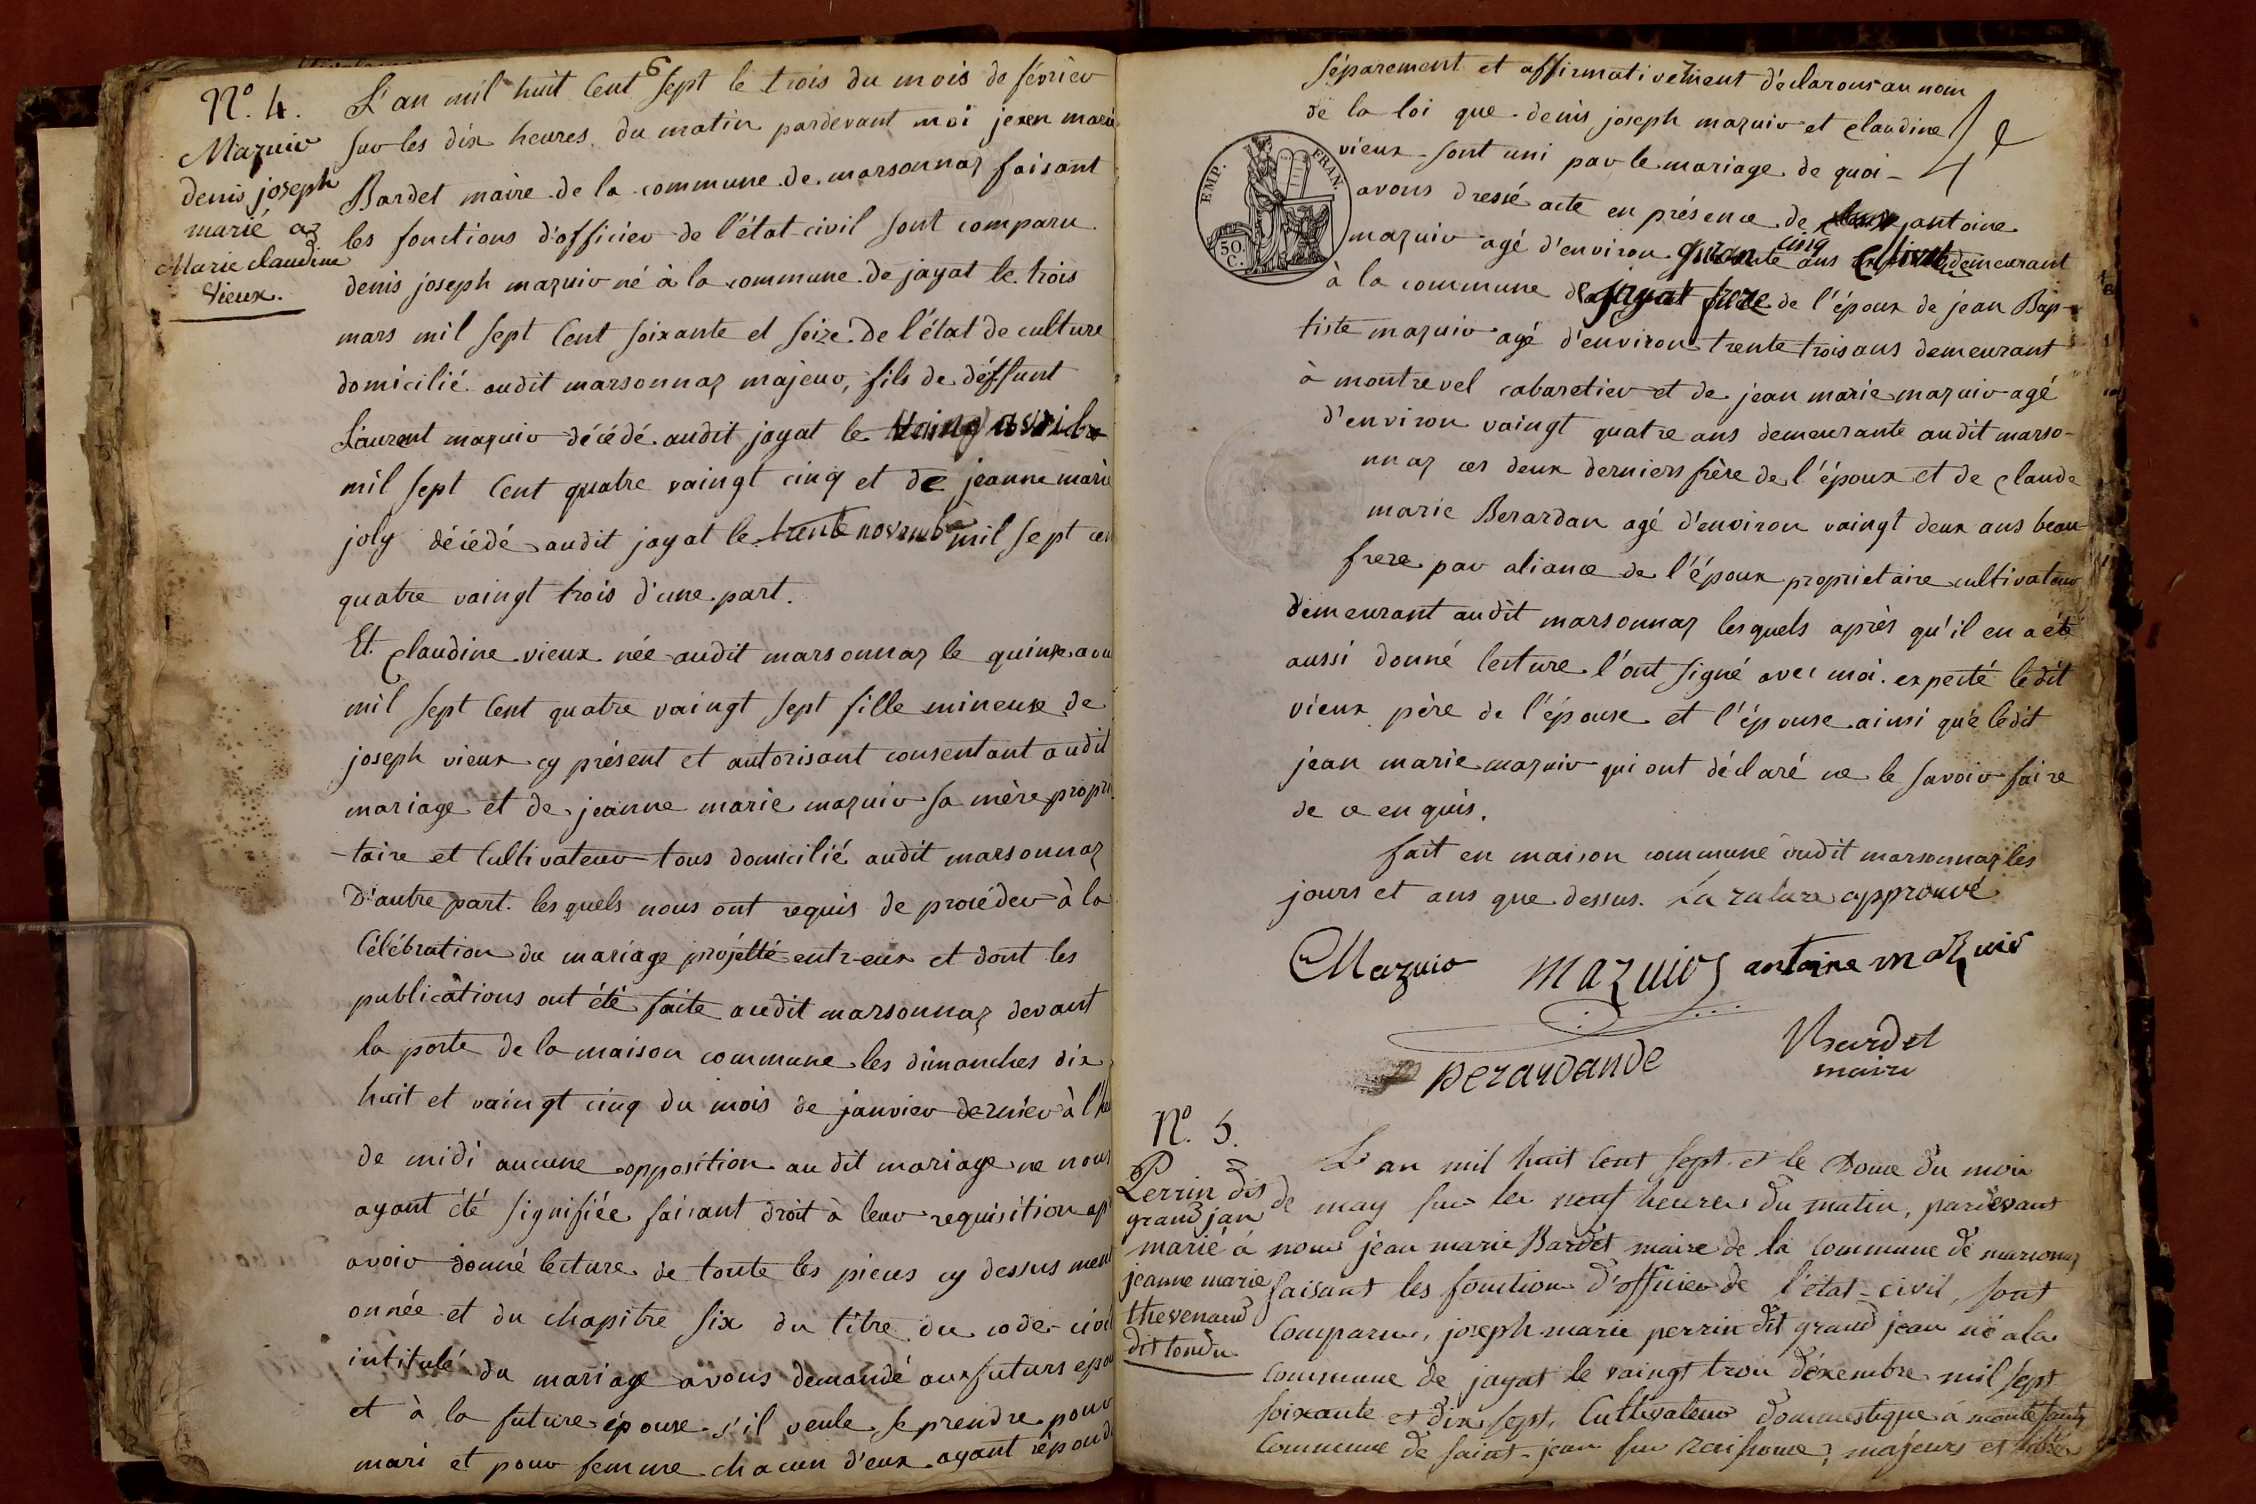 6
N.° 4.
Mazuir
denis joseph
marié az
Marie claudine
Vieux.
L'an mil huit Cent sept le trois du mois de février
sur les dix heures du matin pardevant moi jean marie
Bardet maire de la commune de marsonnaz faisant
les fonctions d'officier de l'état civil sont comparu
denis joseph mazuir né à la commune de jayat le trois
mars mil sept Cent soixante et seize de l'état de culture
domicilié audit marsonnaz majeur, fils de déffunt
Laurent mazuir décédé audit jayat le
mil sept Cent quatre vaingt cinq et de jeanne marie
joly décédé audit jayat le trente novembre mil sept cen
quatre vaingt trois d'une part.
Et claudine vieux née audit marsonnaz le quinze aou
mil sept Cent quatre vaingt sept fille mineure de
joseph vieux cy présent et autorisant consentant audit
mariage et de jeanne marie mazuir sa mère propri
-taire et Cultivateur tous domicilié audit marsonnaz
D'autre part. les quels nous ont requis de procéder à la
Célébration du mariage projétté entr-eux et dont les
publications ont été faite audit marsonnaz devant
la porte de la maison commune les dimanches dix
huit et vaingt cinq du mois de janvier dernier à l'heu
de midi aucune opposition au dit mariage ne nous
ayant été signifiée faisant droit à leur requisition ap
avoir donné lecture de toute les pieces cy dessus ment
onnée et du chapitre six du titre du code civil
intitulé du mariage avons demandé aux futurs epou
et à la future épouse s'il veule se prendre pour
mari et pour femme chacun d'eux ayant répondu
séparement et affirmativement déclarons au nom
de la loi que denis joseph mazuir et claudine
vieux sont uni par le mariage de quoi -
avons dressé acte en présence de antoine
mazuir agé d'environ quarante cinq ans demeurant
à la commune de jayat frere de l'époux de jean Bap-
tiste mazuir agé d'environ trente trois ans demeurant
à montrevel cabaretier et de jean marie mazuir agé
d'environ vaingt quatre ans demeurante audit marso-
nnaz ces deux derniers frère de l'époux et de claude
marie Berardan agé d'environ vaingt deux ans beau
frere par aliance de l'époux proprietaire cultivateur
demeurant audit marsonnaz lesquels après qu'il en a été
aussi donné lecture l'ont signé avec moi. expecté ledit
vieux père de l'épouse et l'épouse ainsi que ledit
jean marie mazuir qui ont déclaré ne le savoir faire
de ce enquis.
fait en maison commune audit marsonnaz les
jours et ans que dessus. La rature approuvé
EMP. FRAN.
50
C.
Mazuir mazuir antoine mazuir
Berardande
Bardet
maire
N.° 5.
Perrin dis
grand jan
marié á
jeanne marie
thevenard
dit tondu
L'an mil huit Cent sept et le Douze du mois
de may sur les neuf heures du matin, pardevant
nous jean marie Bardet maire de la Commune de marsonnaz
faisant les fonction d'officier de l'état-civil, sont
Comparu, joseph marie perrin dit grand jean né a la
Commune de jayat le vaingt trois décembre mil sept
soixante et dix sept, Cultivateur dommestique á
Commune de saint-jean sur raissouse, majeurs et